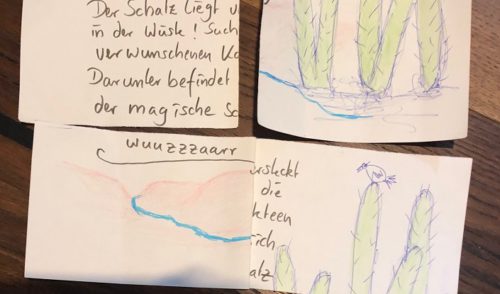 Der Schatz liegt v
in der Wüste! Such
verwunschenen Ka
Darunter befindet
der magische Sc
wuuzzzaarr
ersteckt
die
kteen
ich
atz